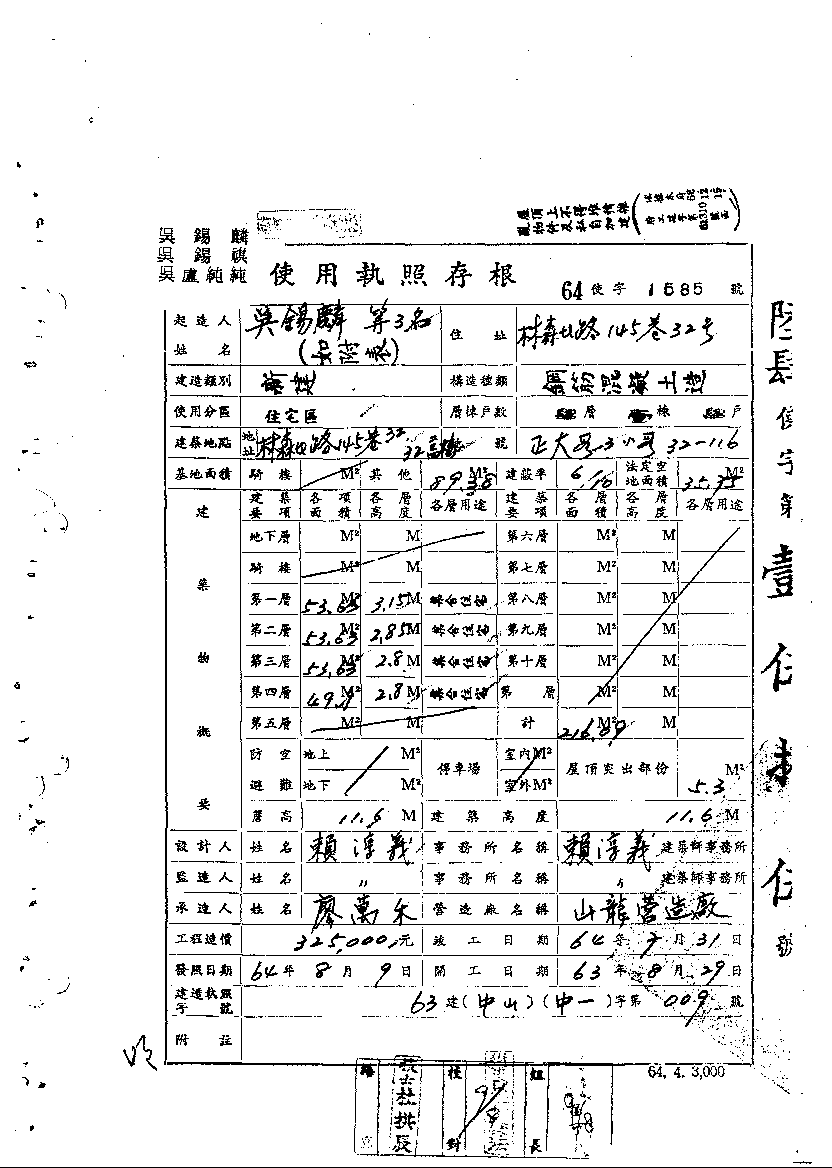 屋頂上不得堆積雜
物件及私自加建
吳錫麟
吳錫祺
吳盧純純
使用執照存根
64使字1585號
起造人姓名 吳錫麟等3名(如附表) 住址 林森北路145巷32号
建造類別 新建 構造種類 鋼筋混凝土造
使用分區 住宅區 層棟戶數 層 棟 戶
建築地點 地址 林森北路145巷32 號 正大段3小段32-116
基地面積 騎樓 M² 其他 89.38M² 建蔽率 6/10 法定空地面積 35.75M²
建築物概要
建築要項 各項面積 各層高度 各層用途 建築要項 各層面積 各層高度 各層用途
地下層 M² M 第六層 M² M
騎樓 M² M 第七層 M² M
第一層 53.63M² 3.15M 集合住宅 第八層 M² M
第二層 53.63M² 2.85M 集合住宅 第九層 M² M
第三層 53.63M² 2.8M 集合住宅 第十層 M² M
第四層 M² 2.8M 集合住宅 第 層 M² M
第五層 M² M 計 M² M
防空避難 地上 M² 地下 M² 停車場 室內M² 室外M² 屋頂突出部份 5.3M²
簷高 11.6M 建築高度 11.6M
設計人 姓名 賴淳義 事務所名稱 賴淳義建築師事務所
監造人 姓名 〃 事務所名稱 〃 建築師事務所
承造人 姓名 廖萬禾 營造廠名稱 山龍營造廠
工程造價 325,000元 竣工日期 64年7月31日
發照日期 64年8月9日 開工日期 63年8月29日
建造執照字號 63建(中山)(中一)字第009號
附註
64. 4. 3,000
校對
組長
陸肆使字第壹仟號